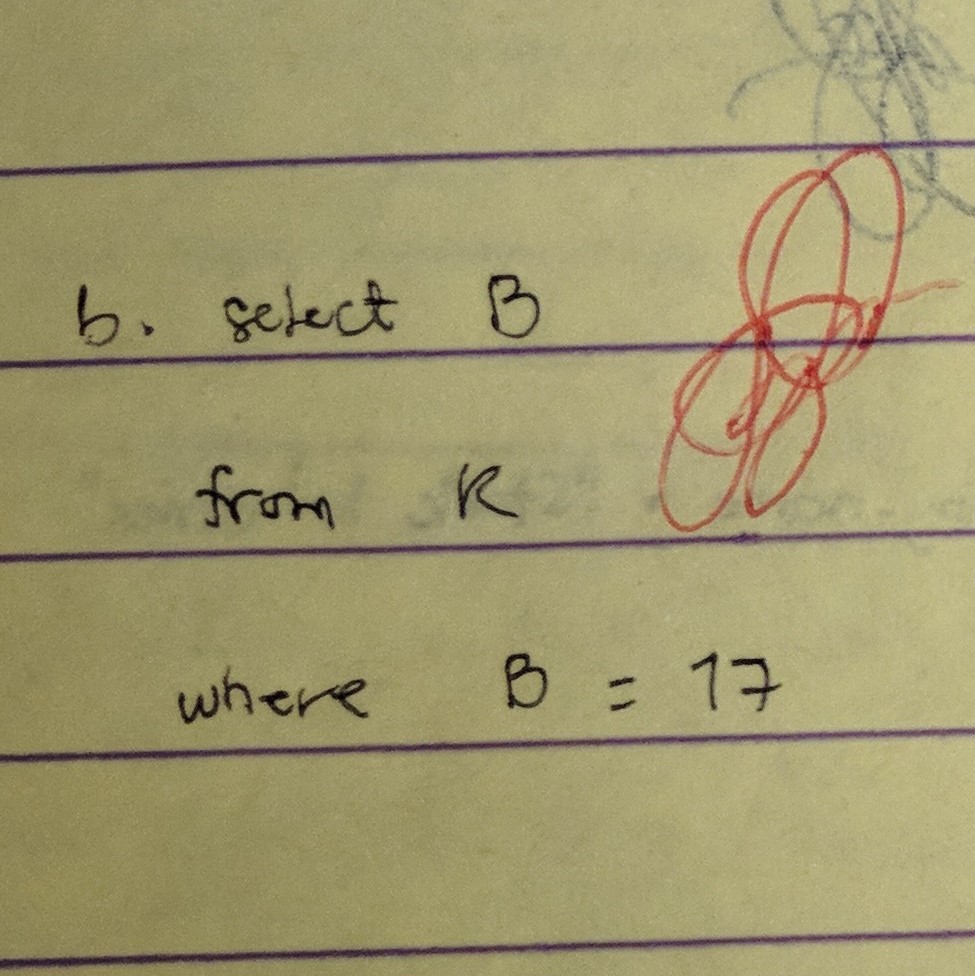 b. select B
from R
where B = 17